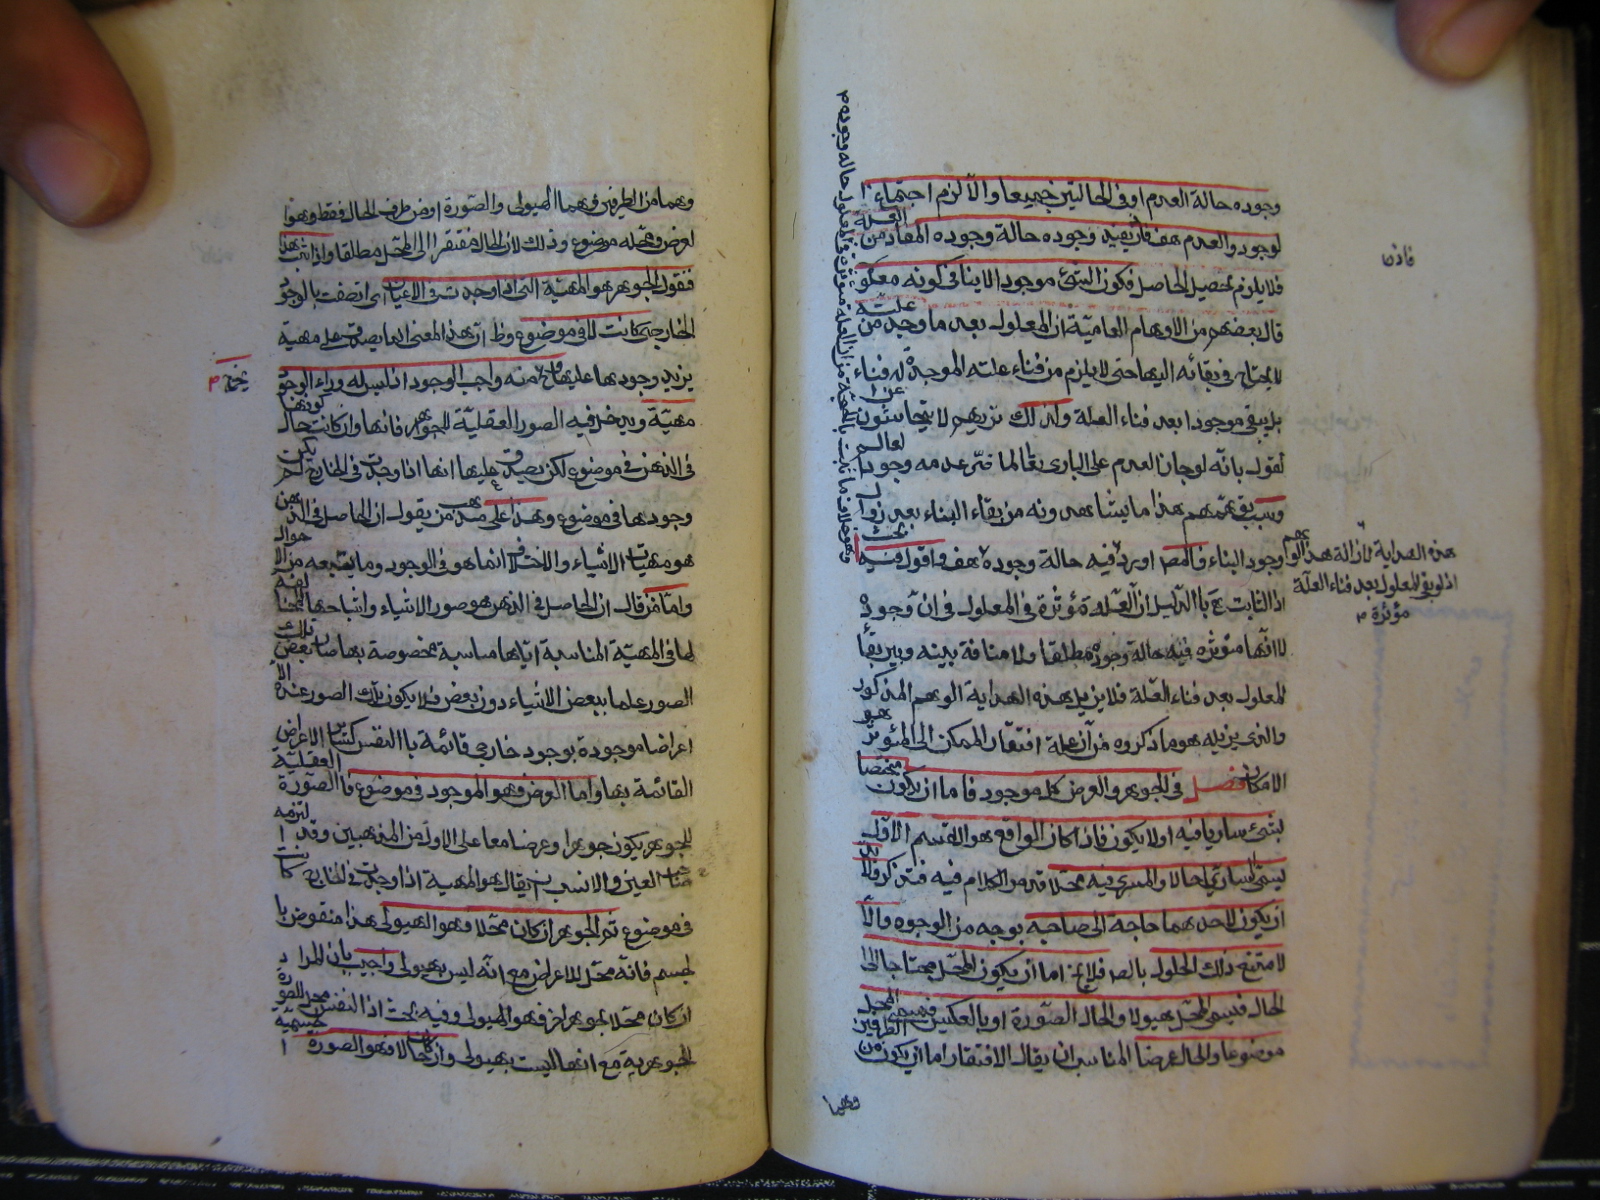 وجوده حالة العدم او في الحالتين جميعا والا لزم اجتماع ا
لوجود والعدم هف فاذن يفيد وجوده حالة وجوده المفاد من العلة
فلا يلزم تحصيل الحاصل فكون الشئ موجودا لا ينافي كونه معلو
قال بعضهم من الاوهام العامية ان المعلول بعد ما وجد من علته
لا يحتاج في بقائه اليها حتى لا يلزم من فناء علته الموجدة له فناء
بل يبقى موجودا بعد فناء العلة ولذلك تريهم لا يتحاشون عن ا
لقول بانه لو جاز العدم على الباري تعالى لما ضر عدمه وجود العالم
وسبب توهمهم هذا ما يشاهدونه من بقاء البناء بعد زوال
وجود البناء والمصـ اورد فيه حالة وجوده هف واقول فيه بحث
اذ الثابت بالدليل ان العلة مؤثرة في المعلول في ان وجوده
لا انها مؤثرة فيه حالة وجوده مطلقا ولا منافاة بينه وبين بقاء
المعلول بعد فناء العلة فلا يزيل هذه الهداية الوهم المذكور
والذي يزيله هو ما ذكروه من ان علة افتقار الممكن الى المؤثر هو
الامكان فصل في الجوهر والعرض كل موجود فاما ان يكون مختصا
بشئ ساريا فيه اولا يكون فاذا كان الواقع هو القسم الاول
يسمى الساري حالا والمسري فيه محلا قد مر الكلام فيه فتذكر ولا بد
ان يكون لاحدهما حاجة الى صاحبه بوجه من الوجوه والا
لامتنع ذلك الحلول بالضـ فلا يخ اما ان يكون المحل محتاجا الى
الحال فيسمى المحل هيولا والحال الصورة او بالعكس فيسمى المحل
موضوعا والحال عرضا المناسب ان يقال الافتقار اما ان يكون من الطرفين
وهما
فاذن
هذه الهداية لازالة هذا الوهم
اذ لو بقي المعلول بعد فناء العلة
مؤثرة
وهما من الطرفين وهما الهيولى والصورة او من طرف الحال فقط وهو ا
لعرض ومحله موضوع وذلك لان الحال مفتقر الى المحل مطلقا واذا ثبت هذا
فنقول الجوهر هو المهية التي اذا وجدت في الاعيان اي اتصفت بالوجود
الخارجي كانت لا في موضوع وظ ان هذا المعنى انما يصدق على مهية
يزيد وجودها عليها فخرج منه واجب الوجود اذ ليس له وراء الوجود
مهية ويدخل فيه الصور العقلية للجواهر فانها وان كانت حال كونها
في الذهن في موضوع لكن يصدق عليها انها اذا وجدت في الخارج لم يكن
وجودها في موضوع وهذا على مذهب من يقول ان الحاصل في الذهن
هو مهيات الاشياء والاختلاف انما هو في الوجود وما يتبعه من الاحوال
واما من قال ان الحاصل في الذهن هو صور الاشياء واشباحها المخالفة
لها في المهية المناسبة اياها مناسبة مخصوصة بها صار بعض تلك
الصور علما ببعض الاشياء دون بعض فلا يكون تلك الصور عنده الا
اعراضا موجودة بوجود خارجي قائمة بالنفس كسائر الاعراض
القائمة بها واما العرض فهو الموجود في موضوع فالصورة العقلية
للجوهر يكون جوهرا وعرضا معا على الاول من المذهبين وقد التزمه ا
صاحب العين والانسب ان يقال هو المهية اذا وجدت في الخارج كانت
في موضوع ثم الجوهر ان كان محلا فهو الهيولى هذا منقوض با
لجسم فانه محل للاعراض مع انه ليس بهيولى واجيب بان المراد
ان كان محلا لجوهر اخر فهو الهيولى وفيه بحث اذ النفس محل للصورة
الجوهرية مع انها ليست بهيولى وان كان حالا فهو الصورة جسمية ا